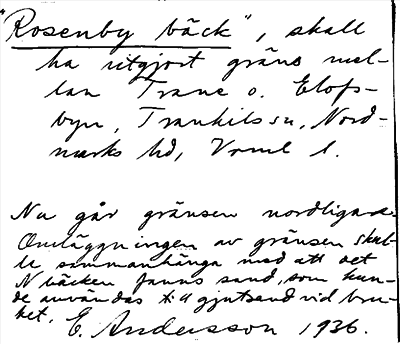 "Rosenby bäck", skall
ha utgjort gräns mel-
lan Trane o. Elofs-
byn, Trankils sn, Nord-
marks hd, Vrml l.
Nu går gränsen nordligare.
Omläggningen av gränsen skul-
le sammanhänga med att det
N bäcken fanns sand, som kun-
de användas till gjutsand vid bru-
ket. E. Andersson 1936.